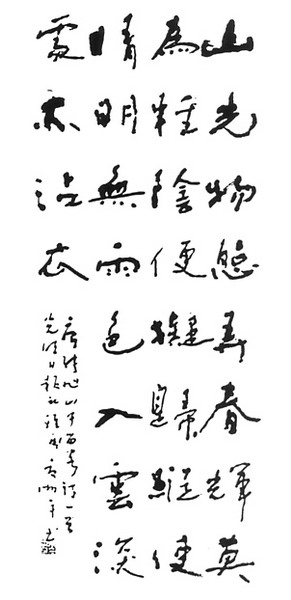 山光物態弄春輝莫
為輕陰便擬歸縱使
晴明無雨色入雲深
處亦沾衣
唐張旭山中留客詩一首